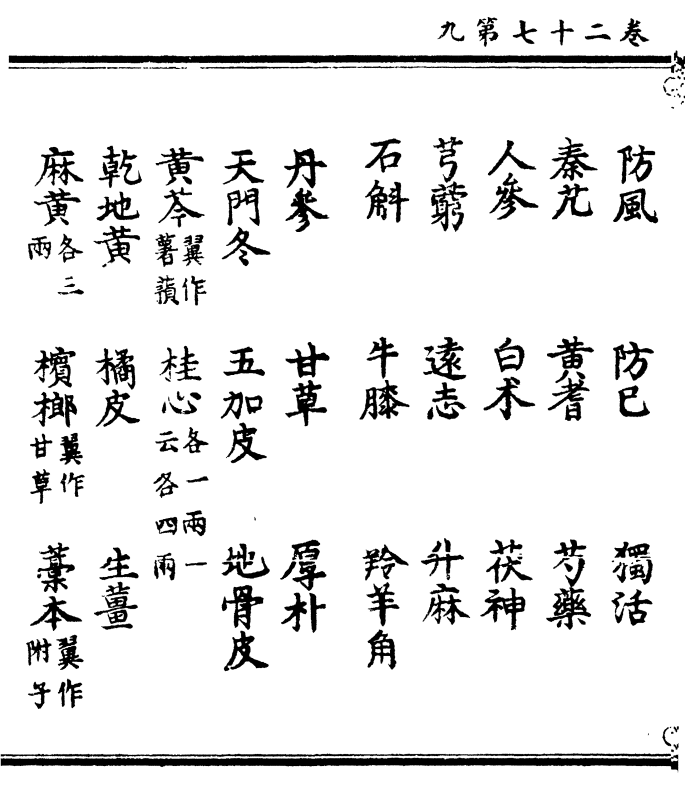 卷二十七第九
防風 防已 獨活
秦艽 黄耆 芍藥
人參 白朮 茯神
芎藭 遠志 升麻
石斛 牛膝 羚羊角
丹參 甘草 厚朴
天門冬 五加皮 地骨皮
黄芩翼作薯蕷 桂心各一兩一云各四兩
乾地黄 橘皮 生薑
麻黄各三兩 檳榔翼作甘草 藁本翼作附子